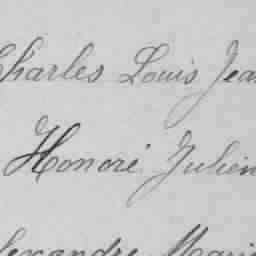 Charles Louis Jea
Honoré Julien
lexandre Marie